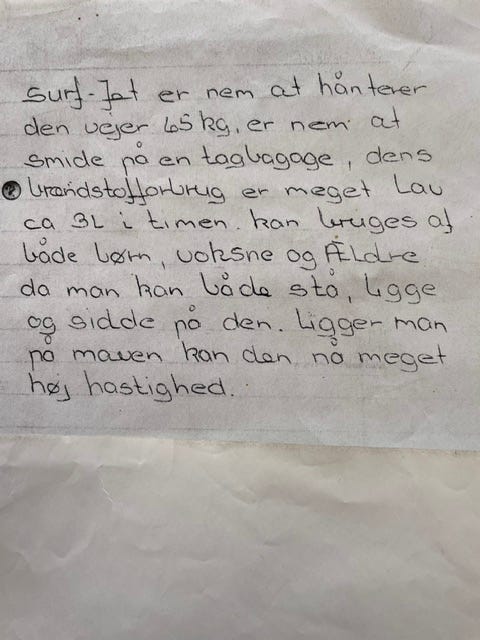 Surf-Jet er nem at hånterer
den vejer 65 kg, er nem at
smide på en tagbagage, dens
brændstofforbrug er meget Lav
ca 3L i timen. kan bruges af
både børn, voksne og Ældre
da man kan både stå, Ligge
og sidde på den. Ligger man
på maven kan den nå meget
høj hastighed.